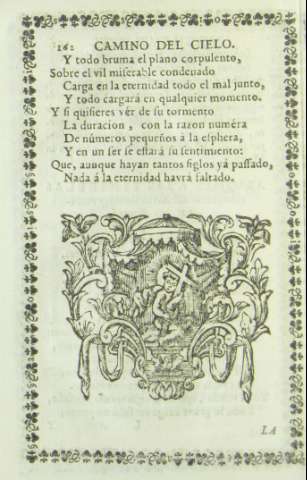 162 CAMINO DEL CIELO.
Y todo bruma el plano corpulento,
Sobre el vil miserable condenado
Carga en la eternidad todo el mal junto,
Y todo cargará en qualquier momento.
Y si quisieres vér de su tormento
La duracion, con la razon numéra
De números pequeños a la esphera,
Y en un ser se estará su sentimiento:
Que, aunque hayan tantos siglos yá passado,
Nada á la eternidad havrá faltado.
LA